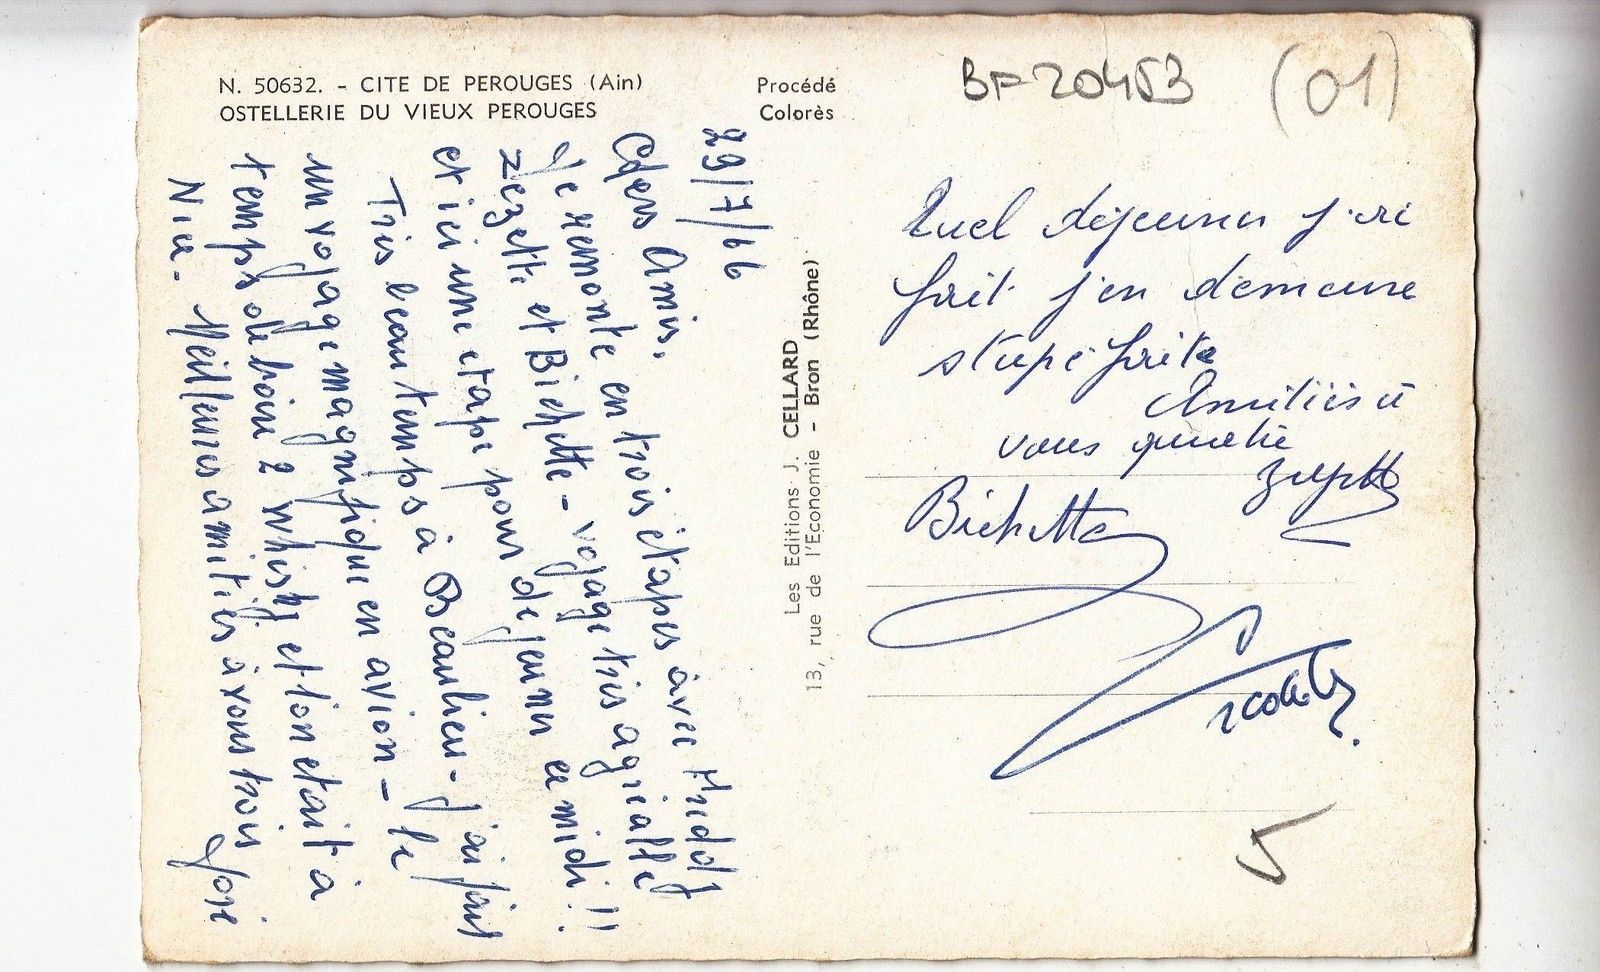 N. 50632. - CITE DE PEROUGES (Ain)
OSTELLERIE DU VIEUX PEROUGES
Procédé
Colorès
BF 20453
(01)
29/7/66
Chers Amis,
Je remonte en trois étapes avec
Zezette et Bichette - voyage très agréable
et ici une étape pour dejeuner ce midi !!
Très beau temps à Beaulieu - j'ai fait
un voyage magnifique en avion - le
temps de boire 2 whisky et l'on etait à
Nice. Meilleures amitiés à vous trois José
Les Editions J. CELLARD
13, rue de l'Economie - Bron (Rhône)
Quel déjeuner j'ai
fait j'en demeure
stupéfaite
Amitiés à
vous
Bichette
5